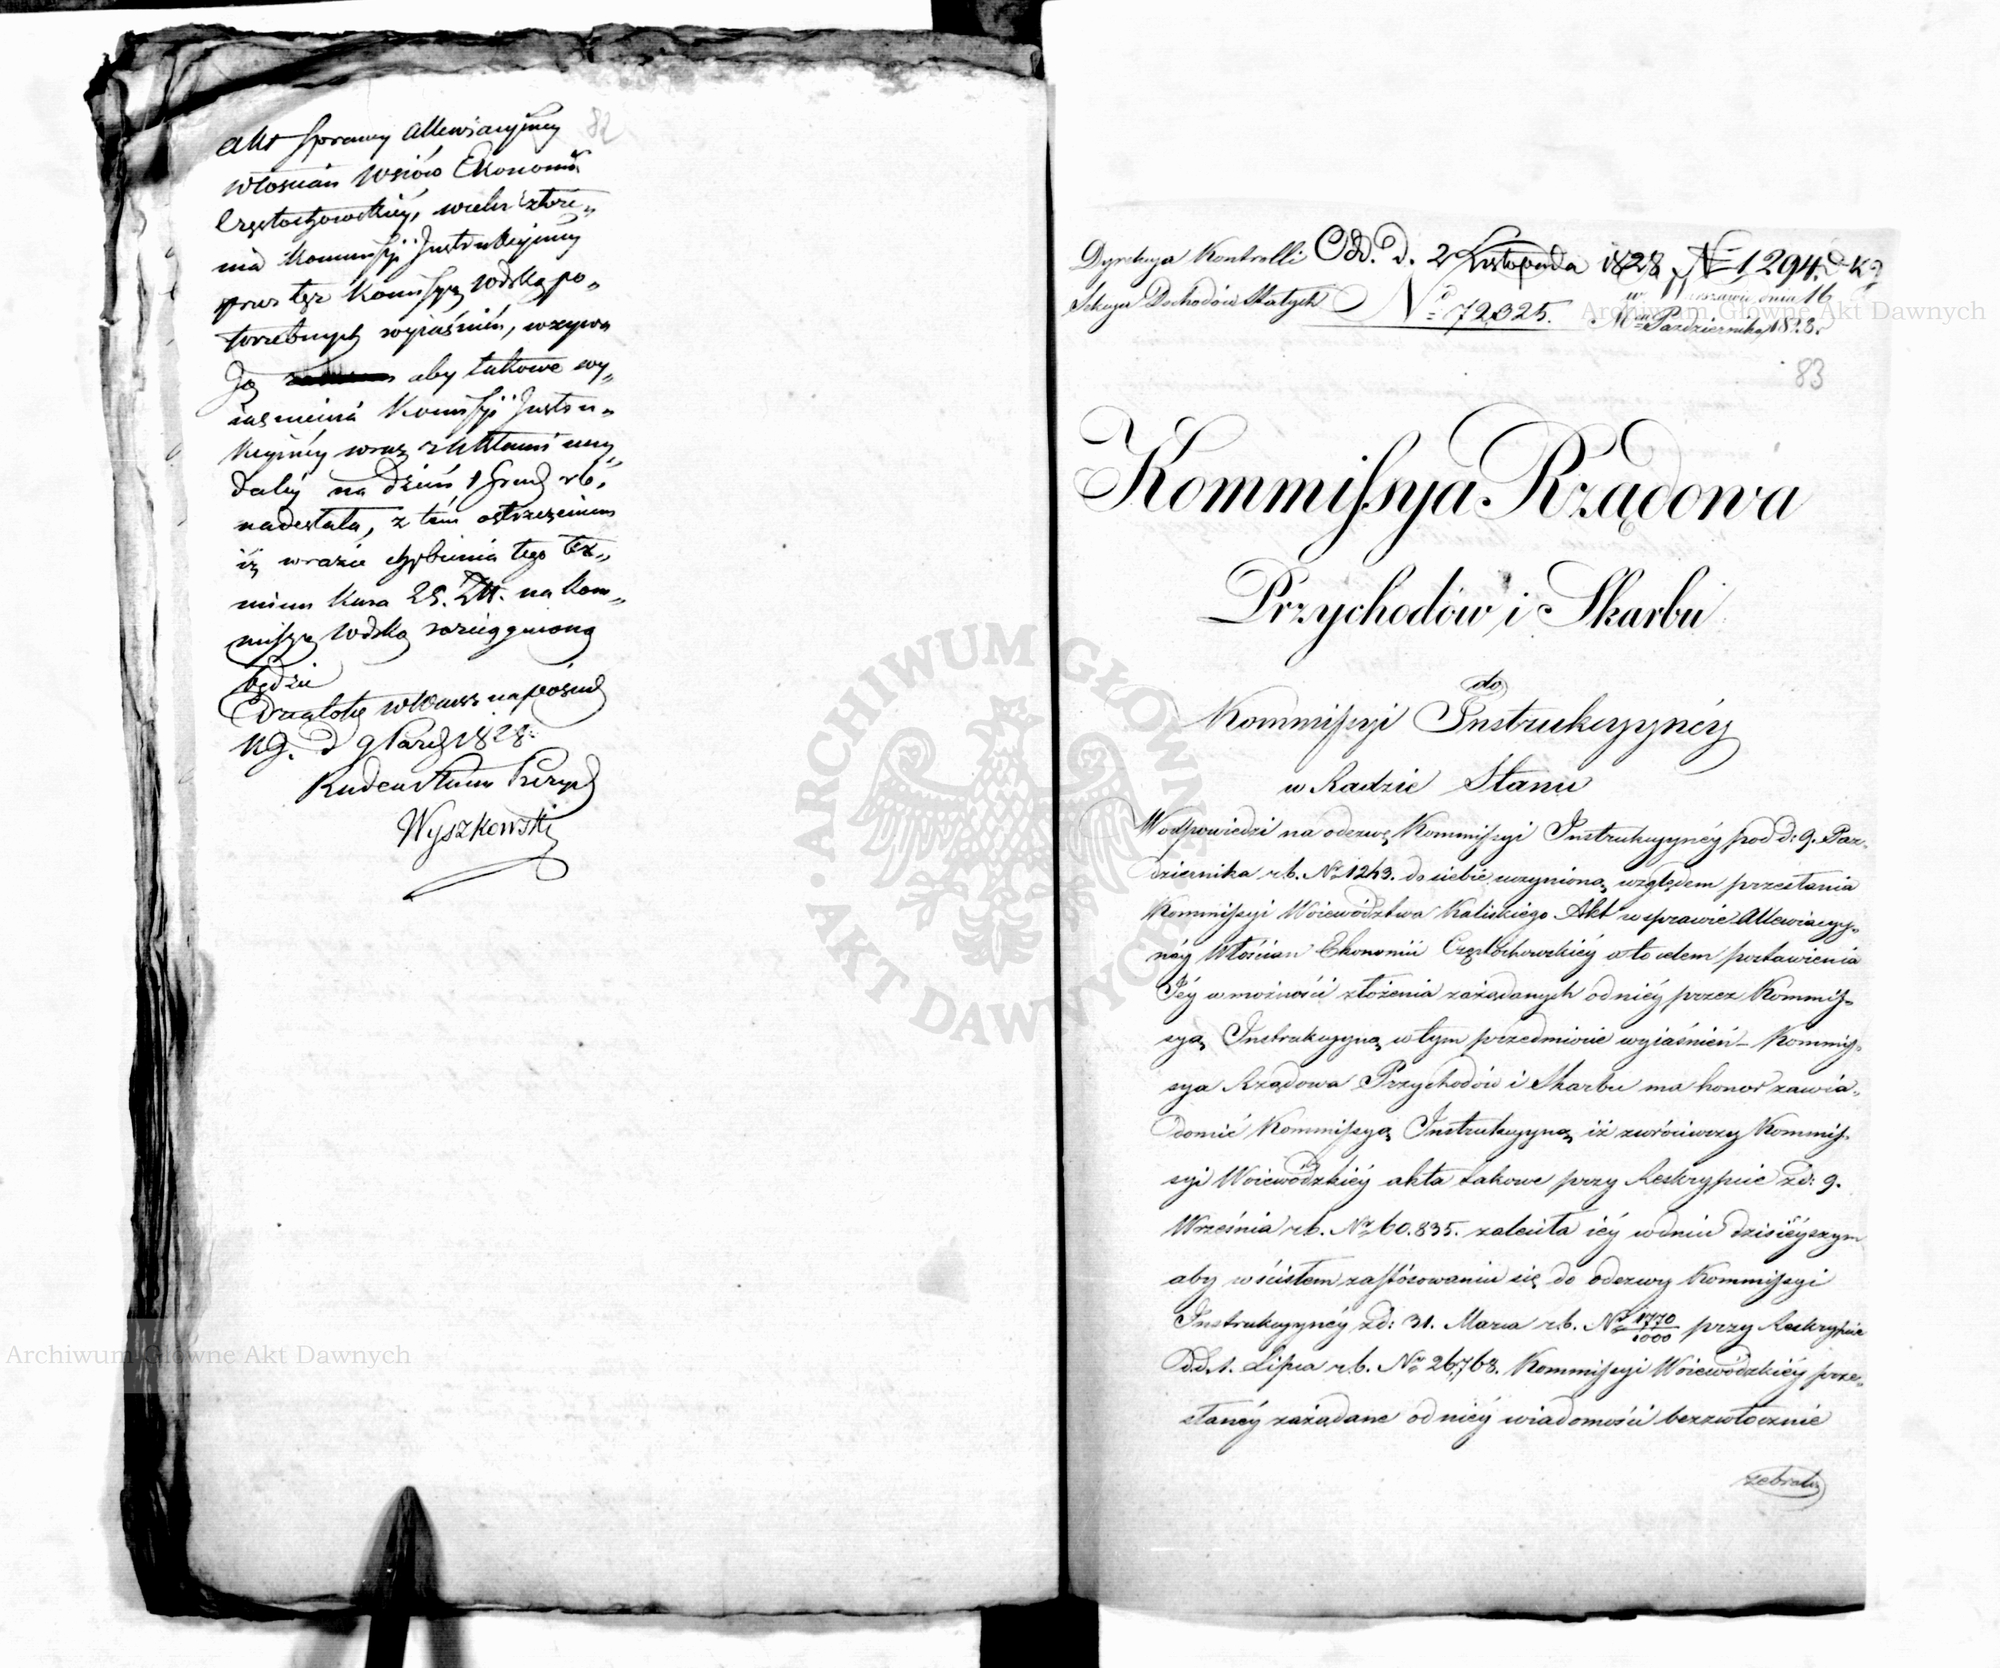 82
Akt sprawy Allewiacyjney
Włoscian Wsiów Ekonomii
Częstochowskiéy, w celu złoże„
nia Kommissyi Instrukcyjney
przez tęż Komissyą Wdzką po„
trzebnych wyiaśnień, wzywa
Ją aby takowe wy„
iasnienia Komissyi Instru„
kcyinéy wraz z Aktami nay„
daléy na dzień 1 Grud rb.
nadesłała, z tém ostrzeżeniem
iż w razie chybienia tego ter„
minu kara 25. Złt. na Kom„
missyą Wdzką rozciągnioną
będzie
Działo się w Warsz na posiedz
d 9 Paźd 1828.
Wyszkowski
Dyrekcya Kontrolli Odd. d. 2 Listopada 1828 Nº 1294. D.K.
Sekcya Dochodów Stałych Nº 72,325. w Warszawie dnia 16
Mca Października 1828.
83
Kommissya Rządowa
Przychodów i Skarbu
do
Kommissyi Instrukcyynéy
w Radzie Stanu
W odpowiedzi na odezwę Kommissyi Instrukcyynéy pod d: 9. Paź„
dziernika r.b. Nº 1243. do siebie uczynioną względem przesłania
Kommissyi Woiewództwa Kaliskiego Akt w sprawie Allewiacyy„
néy Włościan Ekonomii Częstochowskiéy a to celem postawienia
Iéy w możności złożenia zażądanych od niéy przez Kommis„
syą Instrukcyyną w tym przedmiocie wyiaśnień – Kommis„
sya Rządowa Przychodów i Skarbu ma honor zawia„
domić Kommissyą Instrukcyyną iż zwróciwszy Kommis„
syi Woiewódzkiéy akta takowe przy Reskrypcie z d: 9.
Września r.b. Nº 60.835. zaleciła iéy w dniu dzisiéyszym
aby w ścisłem zastósowaniu się do odezwy Kommissyi
Instrukcyynéy z d: 31. Marca r.b. Nº 1770/1000 przy Reskrypcie
d.d. 1. Lipca r.b. Nº 26,768. Kommissyi Woiewódzkiéy prze„
słanéy zażądane od niéy wiadomości bezzwłocznie
zebrała
Archiwum Główne Akt Dawnych
Archiwum Główne Akt Dawnych
ARCHIWUM GŁÓWNE AKT DAWNYCH